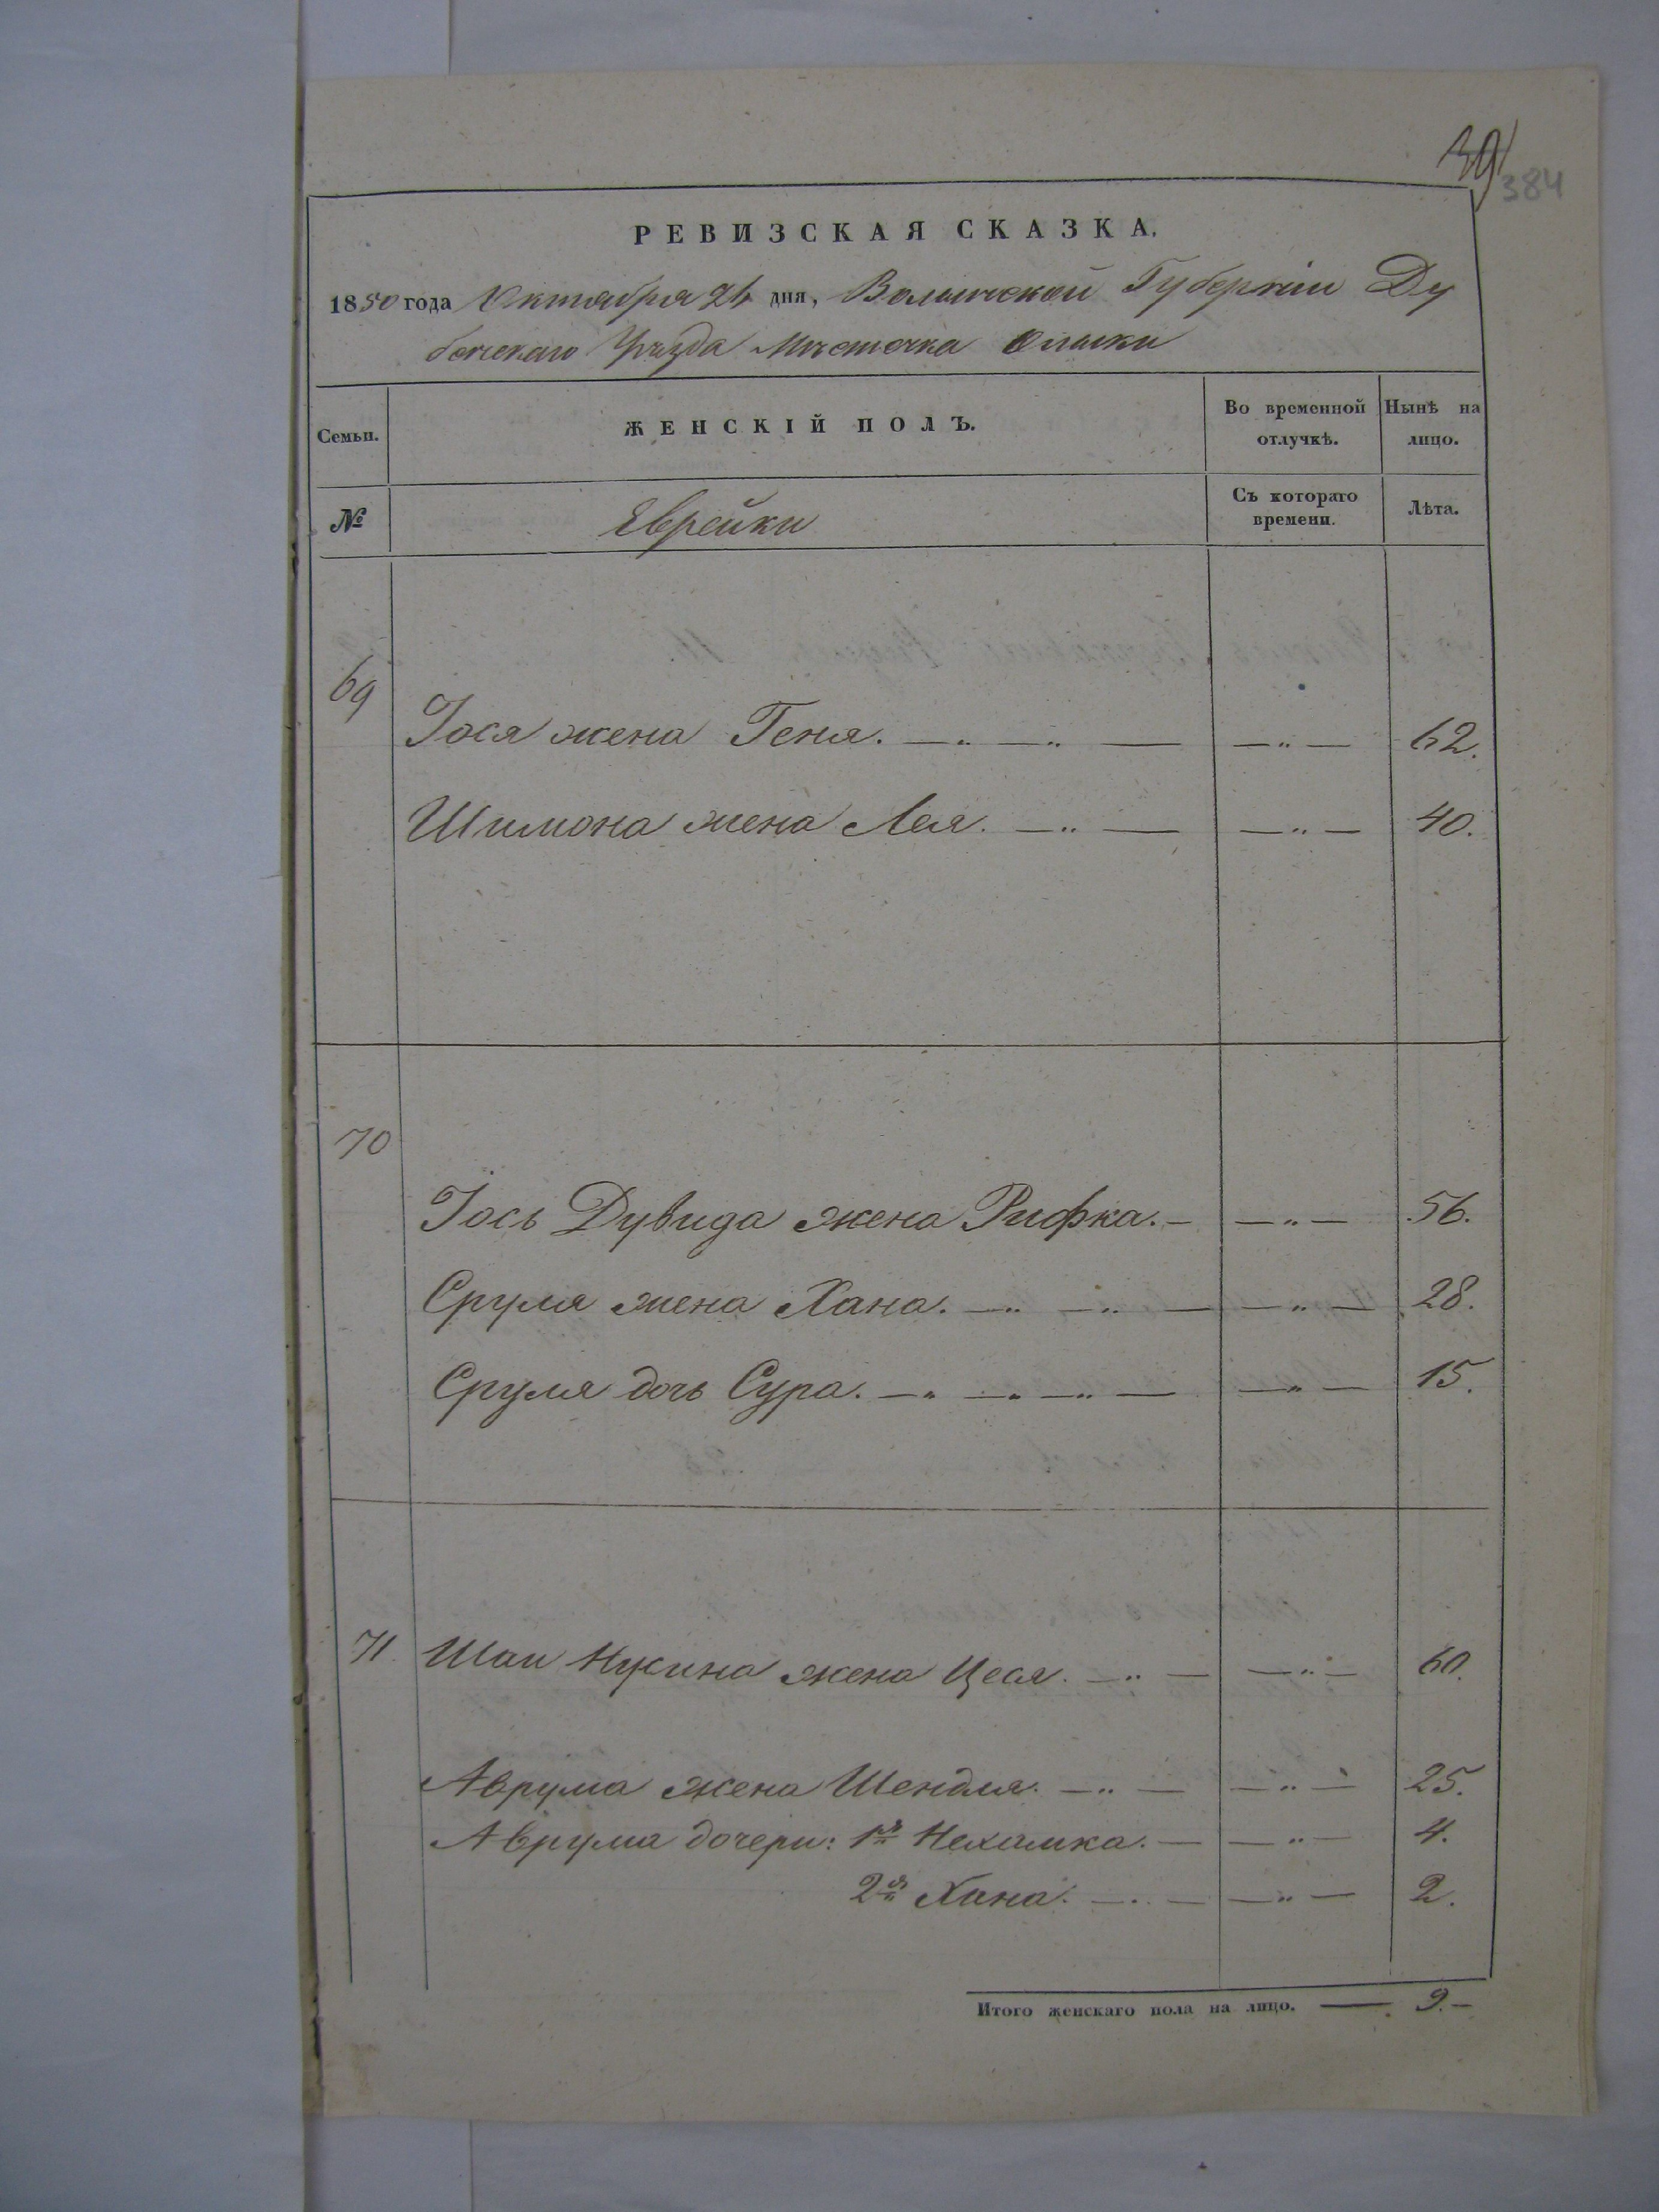 39
384
РЕВИЗСКАЯ СКАЗКА.
1850 года Октября 26 дня, Волынской Губерніи Ду
бенскаго Уѣзда Мѣстечка Олыки
Семьи. ЖЕНСКІЙ ПОЛЪ. Во временной отлучкѣ. Нынѣ на лицо.
№ Еврейки Съ котораго времени. Лѣта.
69
Іося жена Геня. — „ — „ — — „ — 62.
Шимона жена Лея. — „ — — „ — 40.
70
Іось Дувида жена Рифка. — — „ — 56.
Сруля жена Хана. — „ — „ — — „ — 28.
Сруля дочь Сура. — „ — „ — „ — — „ — 15.
71. Шаи Нукина жена Цеся. — „ — — „ — 60.
Аврума жена Шендля. — „ — — „ — 25.
Аврума дочери: 1я Нехамка. — — „ — 4.
2я Хана. — „ — — „ — 2.
Итого женскаго пола на лицо. — 9. —